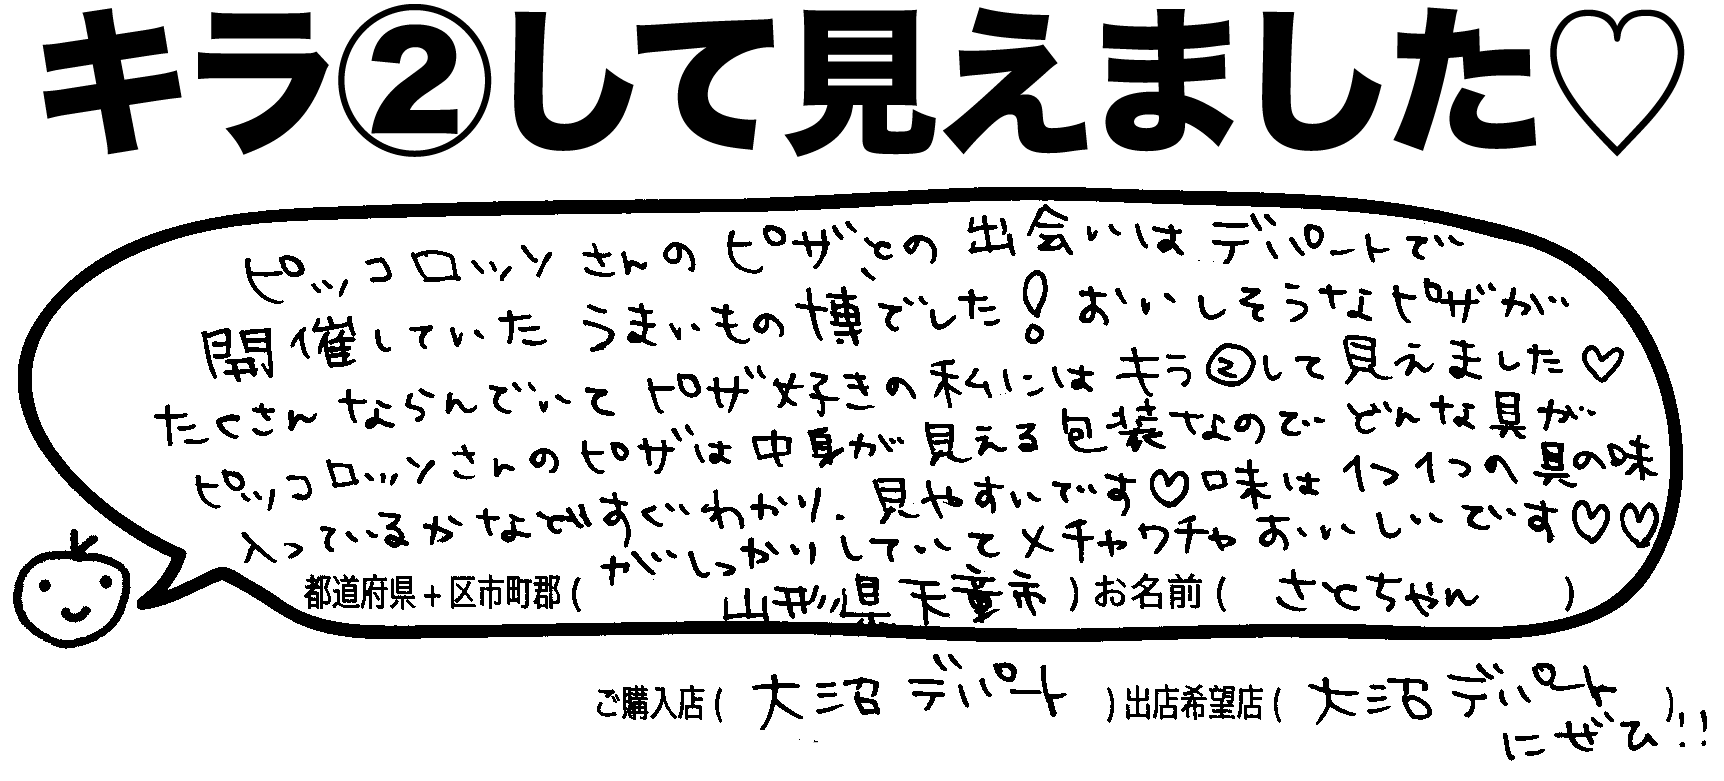 キラ②して見えました♡
ピッコロッソさんのピザとの出会いはデパートで
開催していたうまいもの博でした！おいしそうなピザが
たくさんならんでいてピザ好きの私にはキラ②して見えました♡
ピッコロッソさんのピザは中身が見える包装なのでどんな具が
入っているかなどすぐわかり、見やすいです♡味は1つ1つの具の味
がしっかりしていてメチャウチャおいしいです♡♡
都道府県＋区市町郡（山形県天童市）お名前（さとちゃん）
ご購入店（大沼デパート）出店希望店（大沼デパート）
にぜひ!!